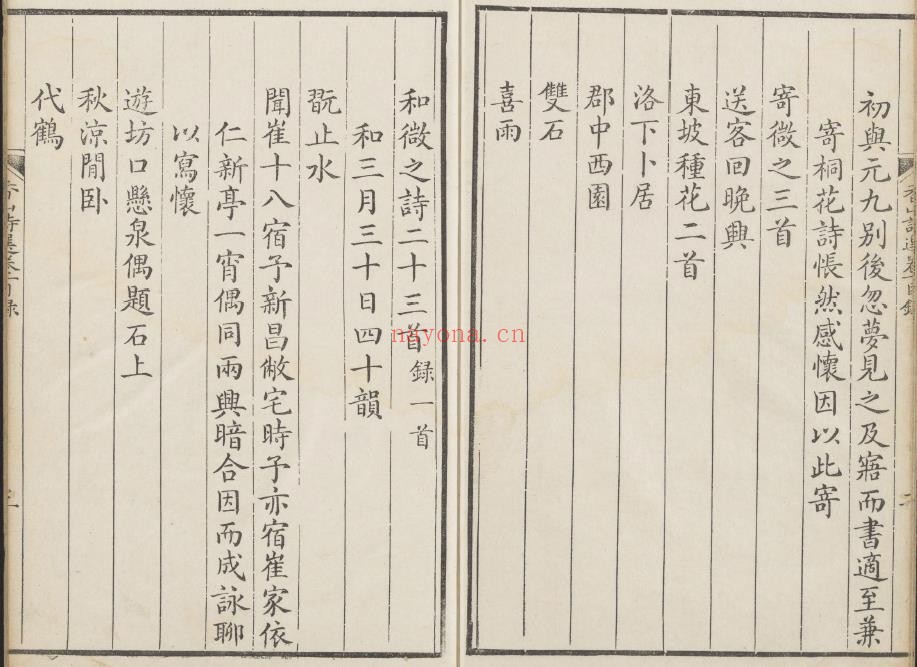 初與元九别後忽夢見之及寤而書適至兼
寄桐花詩悵然感懷因以此寄
寄微之三首
送客回晚興
東坡種花二首
洛下卜居
郡中西園
雙石
喜雨
和微之詩二十三首録一首
和三月三十日四十韻
翫止水
聞崔十八宿予新昌敝宅時予亦宿崔家依
仁新亭一宵偶同兩興暗合因而成詠聊
以寫懷
遊坊口懸泉偶題石上
秋涼閒卧
代鶴
nayona.cn